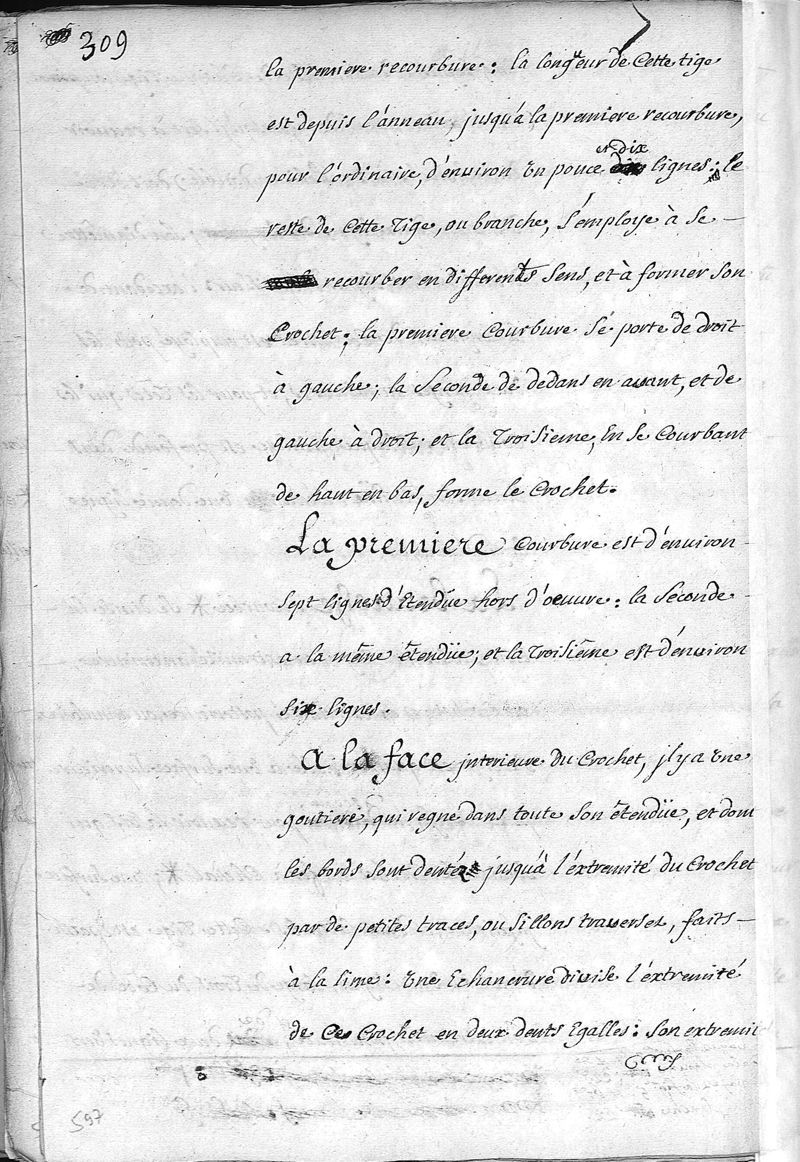 309
la premiere recourbure: la longueur de Cette tige
est depuis l'ánneau, jusqu'a la premiere recourbure,
pour l'órdinaire, d'énviron un pouce et dix lignes: le
reste de Cette Tige, ou branche, s'émploye à se —
recourber en differents Sens, et à former son
Crochet; la premiere Courbure sé porte de droit
à gauche; la Seconde de dedans en avant, et de
gauche à droit; et la Troisieme, En sé Courbant
de haut en bas, forme le Crochet.
La premiere Courbure est d'énviron —
sept lignes d'Etendüe hors d'oeuvre: la Séconde —
a la même étendüe; et la Troisiême est d'énviron
six lignes.
A la face jnterieure du Crochet, jl y a une
goutiere, qui regne dans toute son étendüe, et dont
lés bords sont dentéz jusqu'à l'éxtremité du Crochet
par de petites traces, ou sillons traversez, faits —
à la lime: une Echancrure divise l'éxtremité
de Ce Crochet en deux dents Egalles: Son éxtremit
597